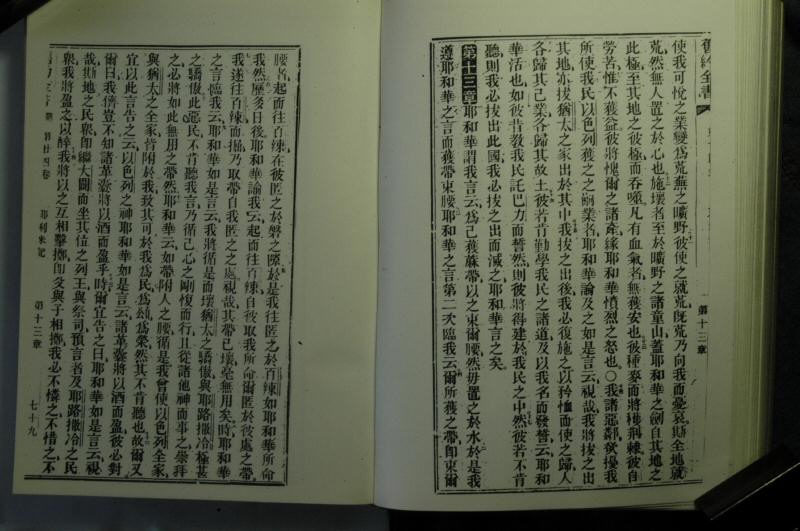 舊約全書
第十三章
使我可悅之業變爲荒蕪之曠野彼使之就荒旣荒乃向我而憂哀斯全地就
荒然無人置之於心也施壞者至於曠野之諸童山蓋耶和華之劍自其地之
此極至其地之彼極而吞噬凡有血氣者無獲安也彼種麥而將穫荆棘彼自
勞苦惟不獲益彼將愧爾之諸產緣耶和華憤烈之怒也○我諸惡鄰欲擾我
所使我民以色列獲之之嗣業者耶和華論及之如是言云視哉我將拔之出
其地亦拔猶太之家出於其中我拔之出後我必復施之以矜恤而使之歸人
各歸其己業各歸其故土彼若肯勤學我民之諸道及以我名而發誓云耶和
華活也如彼昔敎我民託巴力而誓然則彼將得建於我民之中然彼若不肯
聽則我必拔出此國我必拔之出而滅之耶和華言之矣
第十三章耶和華謂我言云爲己獲蔴帶以之束爾腰然毋置之於水於是我
遵耶和華之言而獲帶束腰耶和華之言第二次臨我云爾所獲之帶卽束爾
腰者起而往百辣在彼匿之於磐之隙於是我往匿之於百辣如耶和華所命
我然歷多日後耶和華諭我云起而往百辣自彼取我所命爾匿於彼處之帶
我遂往百辣而掘乃取帶自我匿之之處視哉其帶已壞毫無用矣時耶和華
之言臨我云耶和華如是言云我將循是而壞猶太之驕傲與耶路撒冷極甚
之驕傲此惡民不肯聽我言乃循己心之剛愎而行且從諸他神而事之崇拜
之必將如此無用之帶然耶和華云如帶附人之腰循是我曾使以色列全家
與猶太之全家皆附於我致其可於我爲民爲爲爲榮然其不肯聽也故爾又
宜以此言告之云以色列之神耶和華如是言云諸革囊將以酒而盈彼必對
爾曰我儕豈不知諸革囊將以酒而盈乎時爾宜告之曰耶和華如是言云視
哉斯地之民衆卽繼大闢而坐其位之列王與祭司預言者及耶路撒冷之民
衆我將盈之以醉我將以之互相擊擲卽父與子相擲我必不憐之不惜之不
第廿四卷
耶利米記
第十三章
七十九